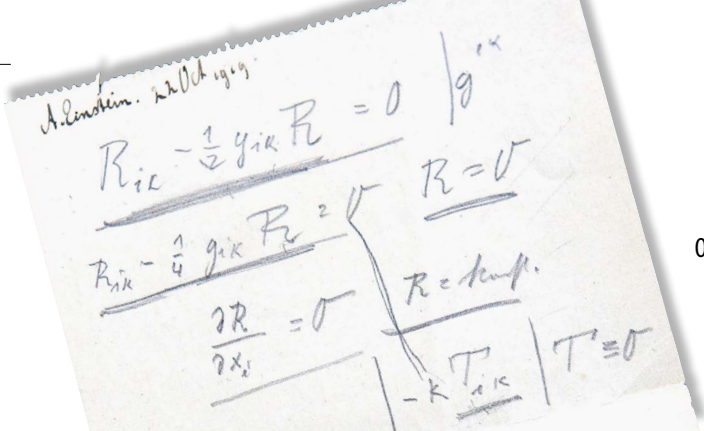 A. Einstein. 22 Oct 1919.
R_{ik} - 1/2 g_{ik} R = 0 | g^{ik}
R = 0
R_{ik} - 1/4 g_{ik} R = 0
R = konst.
∂R/∂x_i = 0
-κ T_{ik} | T ≡ 0
0